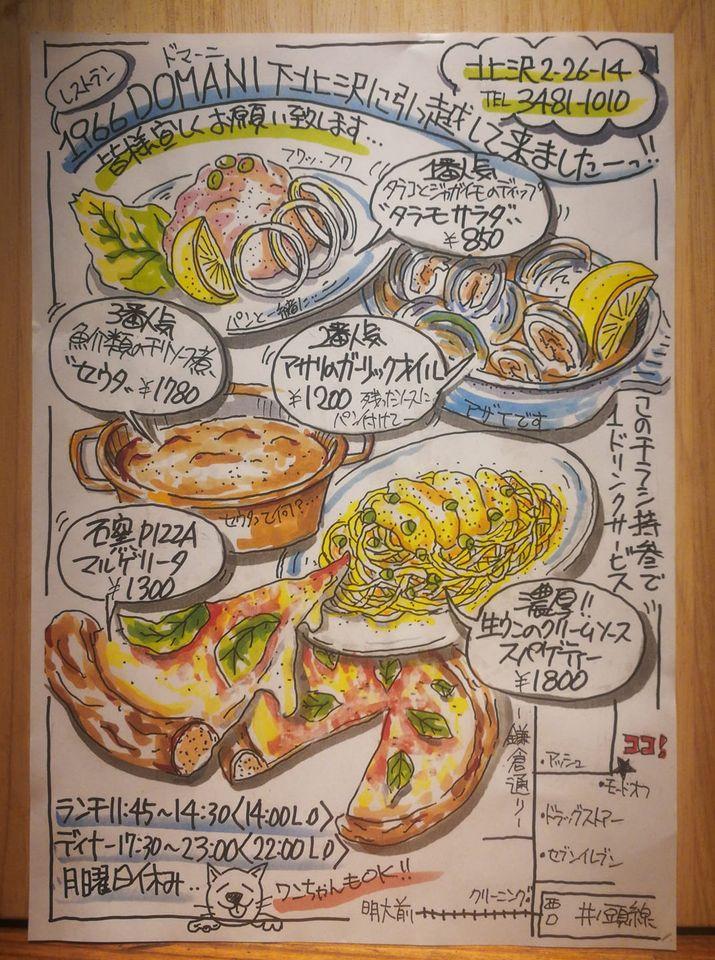 レストラン
ドマーニ
1966 DOMANI 下北沢に引っ越して来ましたーっ!!
皆様宜しくお願い致します…
北沢2-26-14
TEL 3481-1010
フワッ・フワ
1番人気
タラコとジャガイモのディップ
"タラモサラダ"
¥850
パンと一緒に…
3番人気
魚介類のチリソース煮
"セウタ" ¥1780
2番人気
アサリのガーリックオイル
¥1200 残ったソースに
パン付けて
アザーです
このチラシ持参で
1ドリンクサービス
セウタって何!?…
石窯PIZZA
マルゲリータ
¥1300
濃厚!!
生ウニのクリームソース
スパゲティー
¥1800
ランチ11:45~14:30〈14:00LO〉
ディナー17:30~23:00〈22:00LO〉
月曜日休み..
ワンちゃんもOK!!
鎌倉通り
ココ!
・アッシュ
・モードオフ
・ドラッグストアー
・セブンイレブン
クリーニング・
明大前
西口
井の頭線